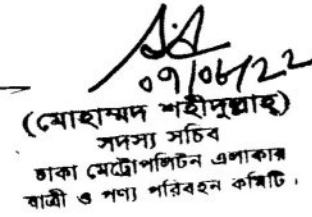 ০৭/০৬/২২
(মোহাম্মদ শহীদুল্লাহ্)
সদস্য সচিব
ঢাকা মেট্রোপলিটন এলাকার
যাত্রী ও পণ্য পরিবহন কমিটি।